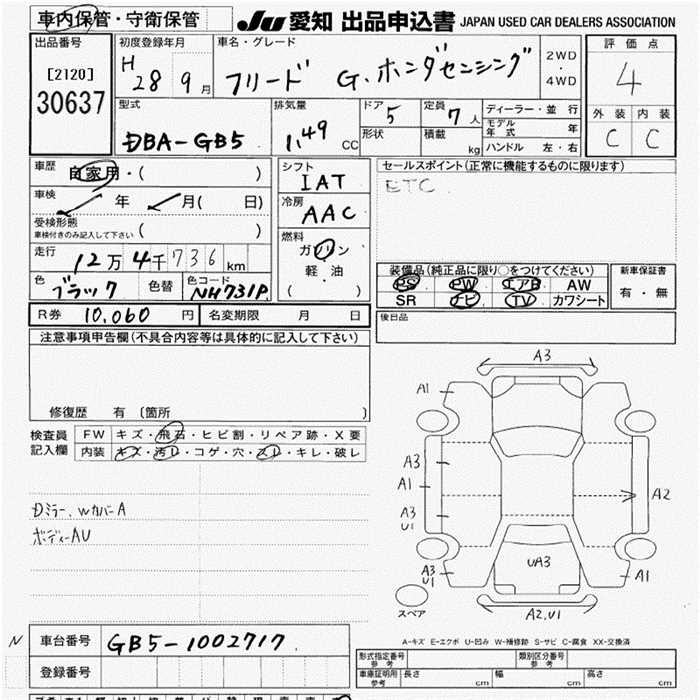 車内保管・守衛保管
JU 愛知 出品申込書 JAPAN USED CAR DEALERS ASSOCIATION
出品番号
[2120]
30637
初度登録年月
H 28 9月
車名・グレード
フリード G.ホンダセンシング
2WD
・
4WD
評価点
4
外装 内装
C C
型式
DBA-GB5
排気量
1.49 CC
ドア 5
形状
定員 7人
積載 kg
ディーラー・並行
モデル年式 年
ハンドル 左・右
車歴
自家用・( )
車検
年 月( 日)
受検形態
車検付きのみ記入して下さい ( )
走行
12万4千736km
色 ブラック 色替 色コード NH731P
シフト
IAT
冷房
AAC
燃料
ガソリン
軽油
( )
セールスポイント(正常に機能するものに限ります)
ETC
装備品(純正品に限り○をつけてください)
PS PW エアB AW
SR ナビ TV カワシート
新車保証書
有・無
R券 10,060円 名変期限 月 日
後日品
注意事項申告欄(不具合内容等は具体的に記入して下さい)
修復歴 有 〔箇所 〕
検査員記入欄
FW キズ・飛石・ヒビ割・リペア跡・X要
内装 キズ・汚レ・コゲ・穴・スレ・キレ・破レ
Dミラー、WカバーA
ボディーAU
A3
A1
A3
A1
A3
U1
A2
A3
U1
UA3
A1
スペア
A2,U1
A-キズ E-エクボ U-凹み W-補修跡 S-サビ C-腐食 XX-交換済
N 車台番号 GB5-1002717
登録番号
形式指定番号 参考
類別区分番号 参考
車庫証明用 参考 長さ cm 幅 cm 高さ cm